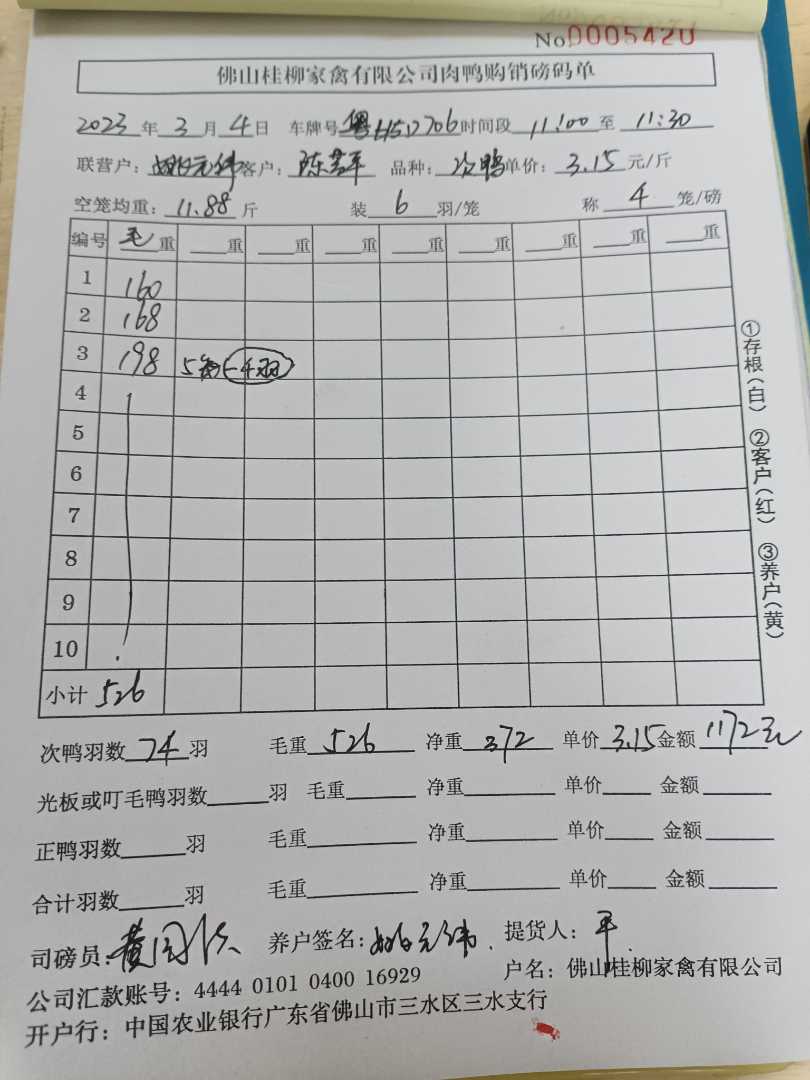 No 0005420
佛山桂柳家禽有限公司肉鸭购销磅码单
2023年3月4日 车牌号 粤H5D706 时间段 11:00 至 11:30
联营户: 元纬 客户: 陈志平 品种: 次鸭 单价: 3.15 元/斤
空笼均重: 11.88 斤 装 6 羽/笼 称 4 笼/磅
编号 毛重 重 重 重 重 重 重 重 重
1 160
2 168
3 198 5 (-4羽)
4
5
6
7
8
9
10
小计 526
次鸭羽数 74 羽 毛重 526 净重 372 单价 3.15 金额 1172元
光板或叮毛鸭羽数 羽 毛重 净重 单价 金额
正鸭羽数 羽 毛重 净重 单价 金额
合计羽数 羽 毛重 净重 单价 金额
司磅员: 黄国 养户签名: 元纬 提货人: 平
公司汇款账号: 4444 0101 0400 16929 户名: 佛山桂柳家禽有限公司
开户行: 中国农业银行广东省佛山市三水区三水支行
①存根(白) ②客户(红) ③养户(黄)